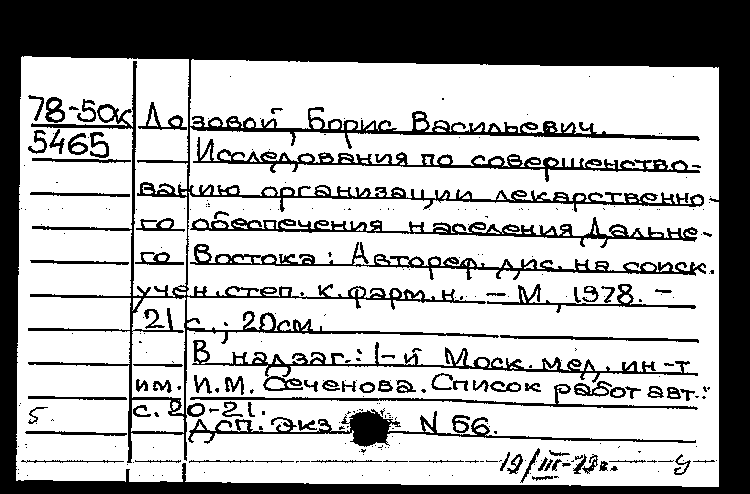 78-50к Лозовой, Борис Васильевич.
5465 Исследования по совершенство-
ванию организации лекарственно-
го обеспечения населения Дальне-
го Востока: Автореф. дис. на соиск.
учен. степ. к. фарм. н. - М., 1978. -
21 с.; 20см.
В надзаг.: 1-й Моск. мед. ин-т
им. И.М. Сеченова. Список работ авт.:
с. 20-21.
5 Дсп. Экз. N 56.
19/III-79г.